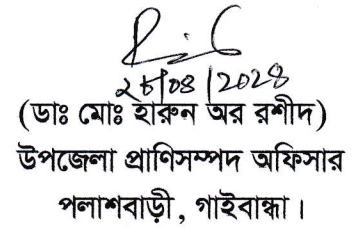 (ডাঃ মোঃ হারুন অর রশীদ)
উপজেলা প্রাণিসম্পদ অফিসার
পলাশবাড়ী, গাইবান্ধা।